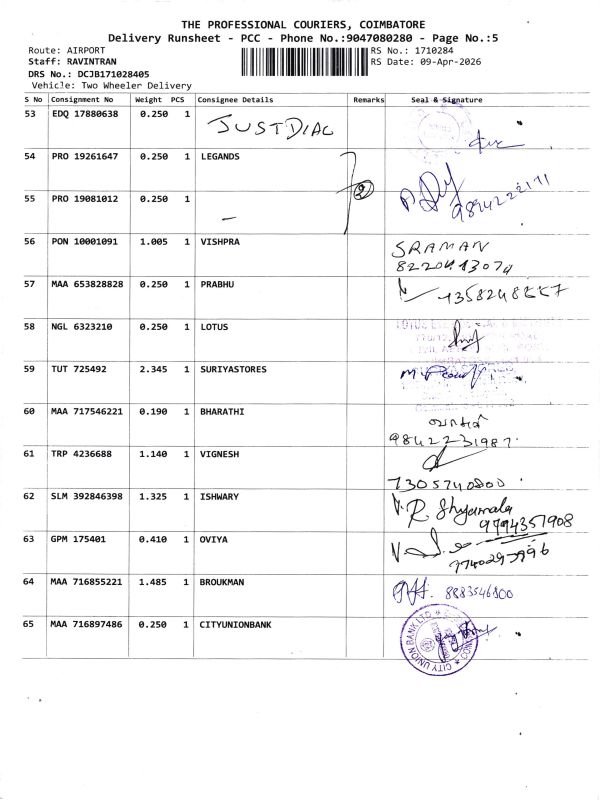 THE PROFESSIONAL COURIERS, COIMBATORE
Delivery Runsheet - PCC - Phone No.:9047080280 - Page No.:5
Route: AIRPORT RS No.: 1710284
Staff: RAVINTRAN RS Date: 09-Apr-2026
DRS No.: DCJB171028405
Vehicle: Two Wheeler Delivery
S No Consignment No Weight PCS Consignee Details Remarks Seal & Signature
53 EDQ 17880638 0.250 1 JUSTDIAL
54 PRO 19261647 0.250 1 LEGANDS
2
55 PRO 19081012 0.250 1 -
56 PON 10001091 1.005 1 VISHPRA SRAMAN
57 MAA 653828828 0.250 1 PRABHU
58 NGL 6323210 0.250 1 LOTUS
59 TUT 725492 2.345 1 SURIYASTORES
60 MAA 717546221 0.190 1 BHARATHI
9842231987
61 TRP 4236688 1.140 1 VIGNESH
7305740800
62 SLM 392846398 1.325 1 ISHWARY R. Shyamala
9794357908
63 GPM 175401 0.410 1 OVIYA
64 MAA 716855221 1.485 1 BROUKMAN 8883546800
65 MAA 716897486 0.250 1 CITYUNIONBANK CITY UNION BANK LTD